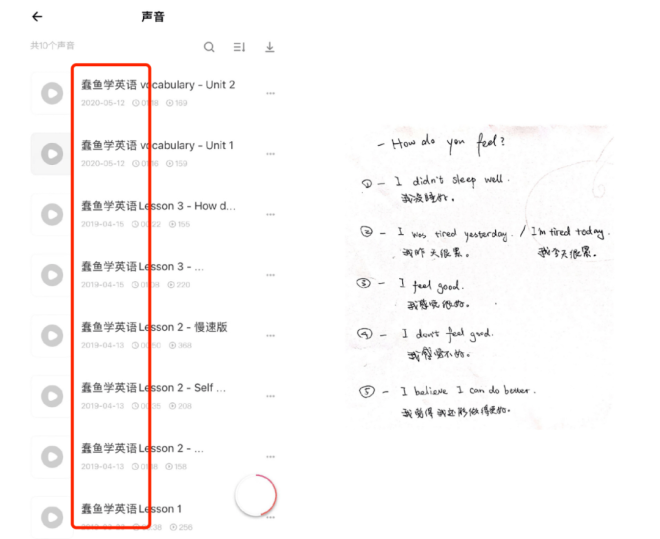 声音
共10个声音
蠢鱼学英语 vocabulary - Unit 2
2020-05-12 169
蠢鱼学英语 vocabulary - Unit 1
2020-05-12 159
蠢鱼学英语 Lesson 3 - How d...
2019-04-15 155
蠢鱼学英语 Lesson 3 - ...
2019-04-15 220
蠢鱼学英语 Lesson 2 - 慢速版
2019-04-13 368
蠢鱼学英语 Lesson 2 - Self ...
2019-04-13 208
蠢鱼学英语 Lesson 2 - ...
2019-04-13 158
蠢鱼学英语 Lesson 1
256
- How do you feel?
① - I didn't sleep well.
我没睡好。
② - I was tired yesterday. / I'm tired today.
我昨天很累。 我今天很累。
③ - I feel good.
我感觉很好。
④ - I don't feel good.
我感觉不好。
⑤ - I believe I can do better.
我觉得我还能做得更好。